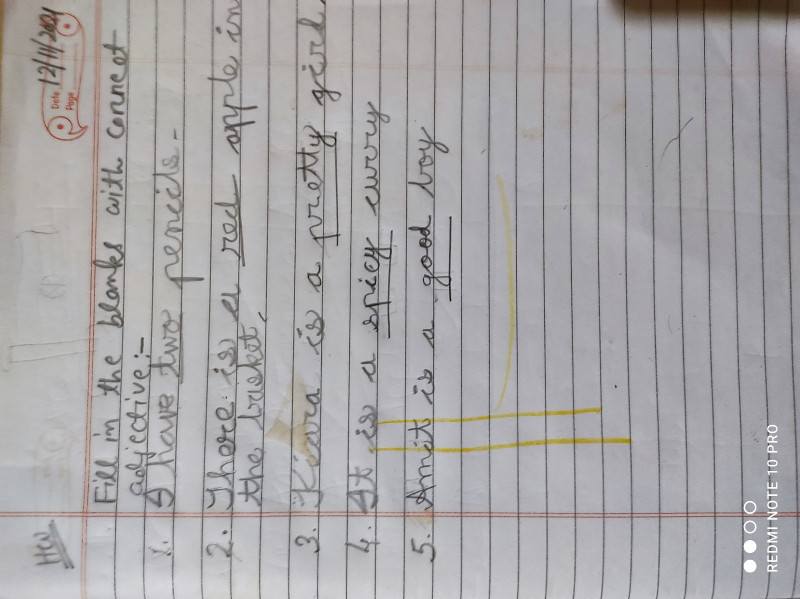 HW
Date 12/11/2021
Page
Fill in the blanks with correct
adjective:-
1. I have two pencils.
2. There is a red apple in
the basket.
3. Kiara is a pretty girl.
4. It is a spicy curry
5. Amit is a good boy
REDMI NOTE 10 PRO